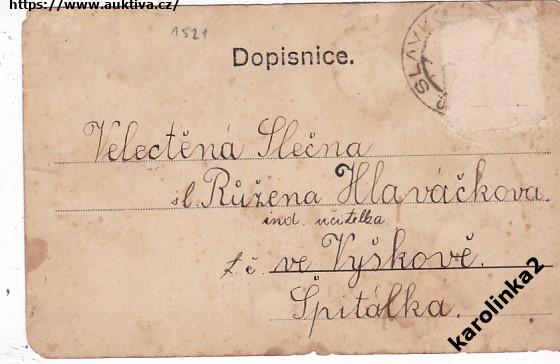 https://www.auktiva.cz/
1521
Dopisnice.
SLAVK
Velectěná Slečna
sl. Růžena Hlaváčkova.
ind. učitelka
t. č. ve Vyškově.
Špitálka.
karolinka2